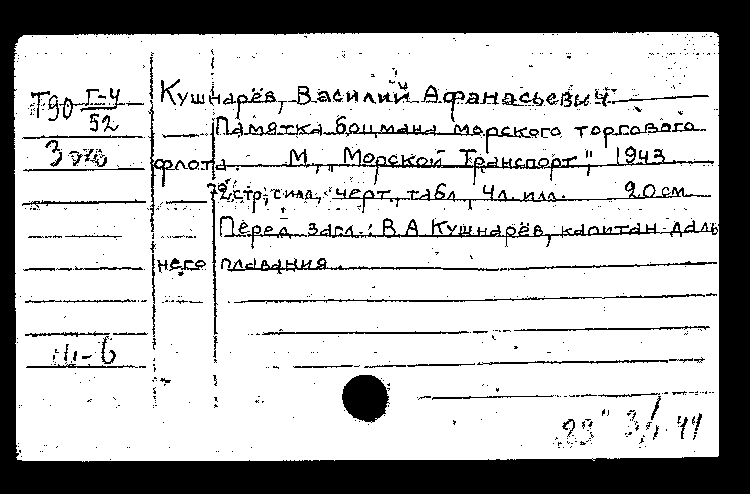 Т90 Г-4/52
3 экз
Кушнарёв, Василий Афанасьевич.
Памятка боцмана морского торгового
флота. М., "Морской Транспорт", 1943
72 стр., черт., табл., 4 л. илл. 20 см.
Перед загл.: В.А Кушнарёв, капитан даль
него плавания.
III-6
"23" 3/I 44